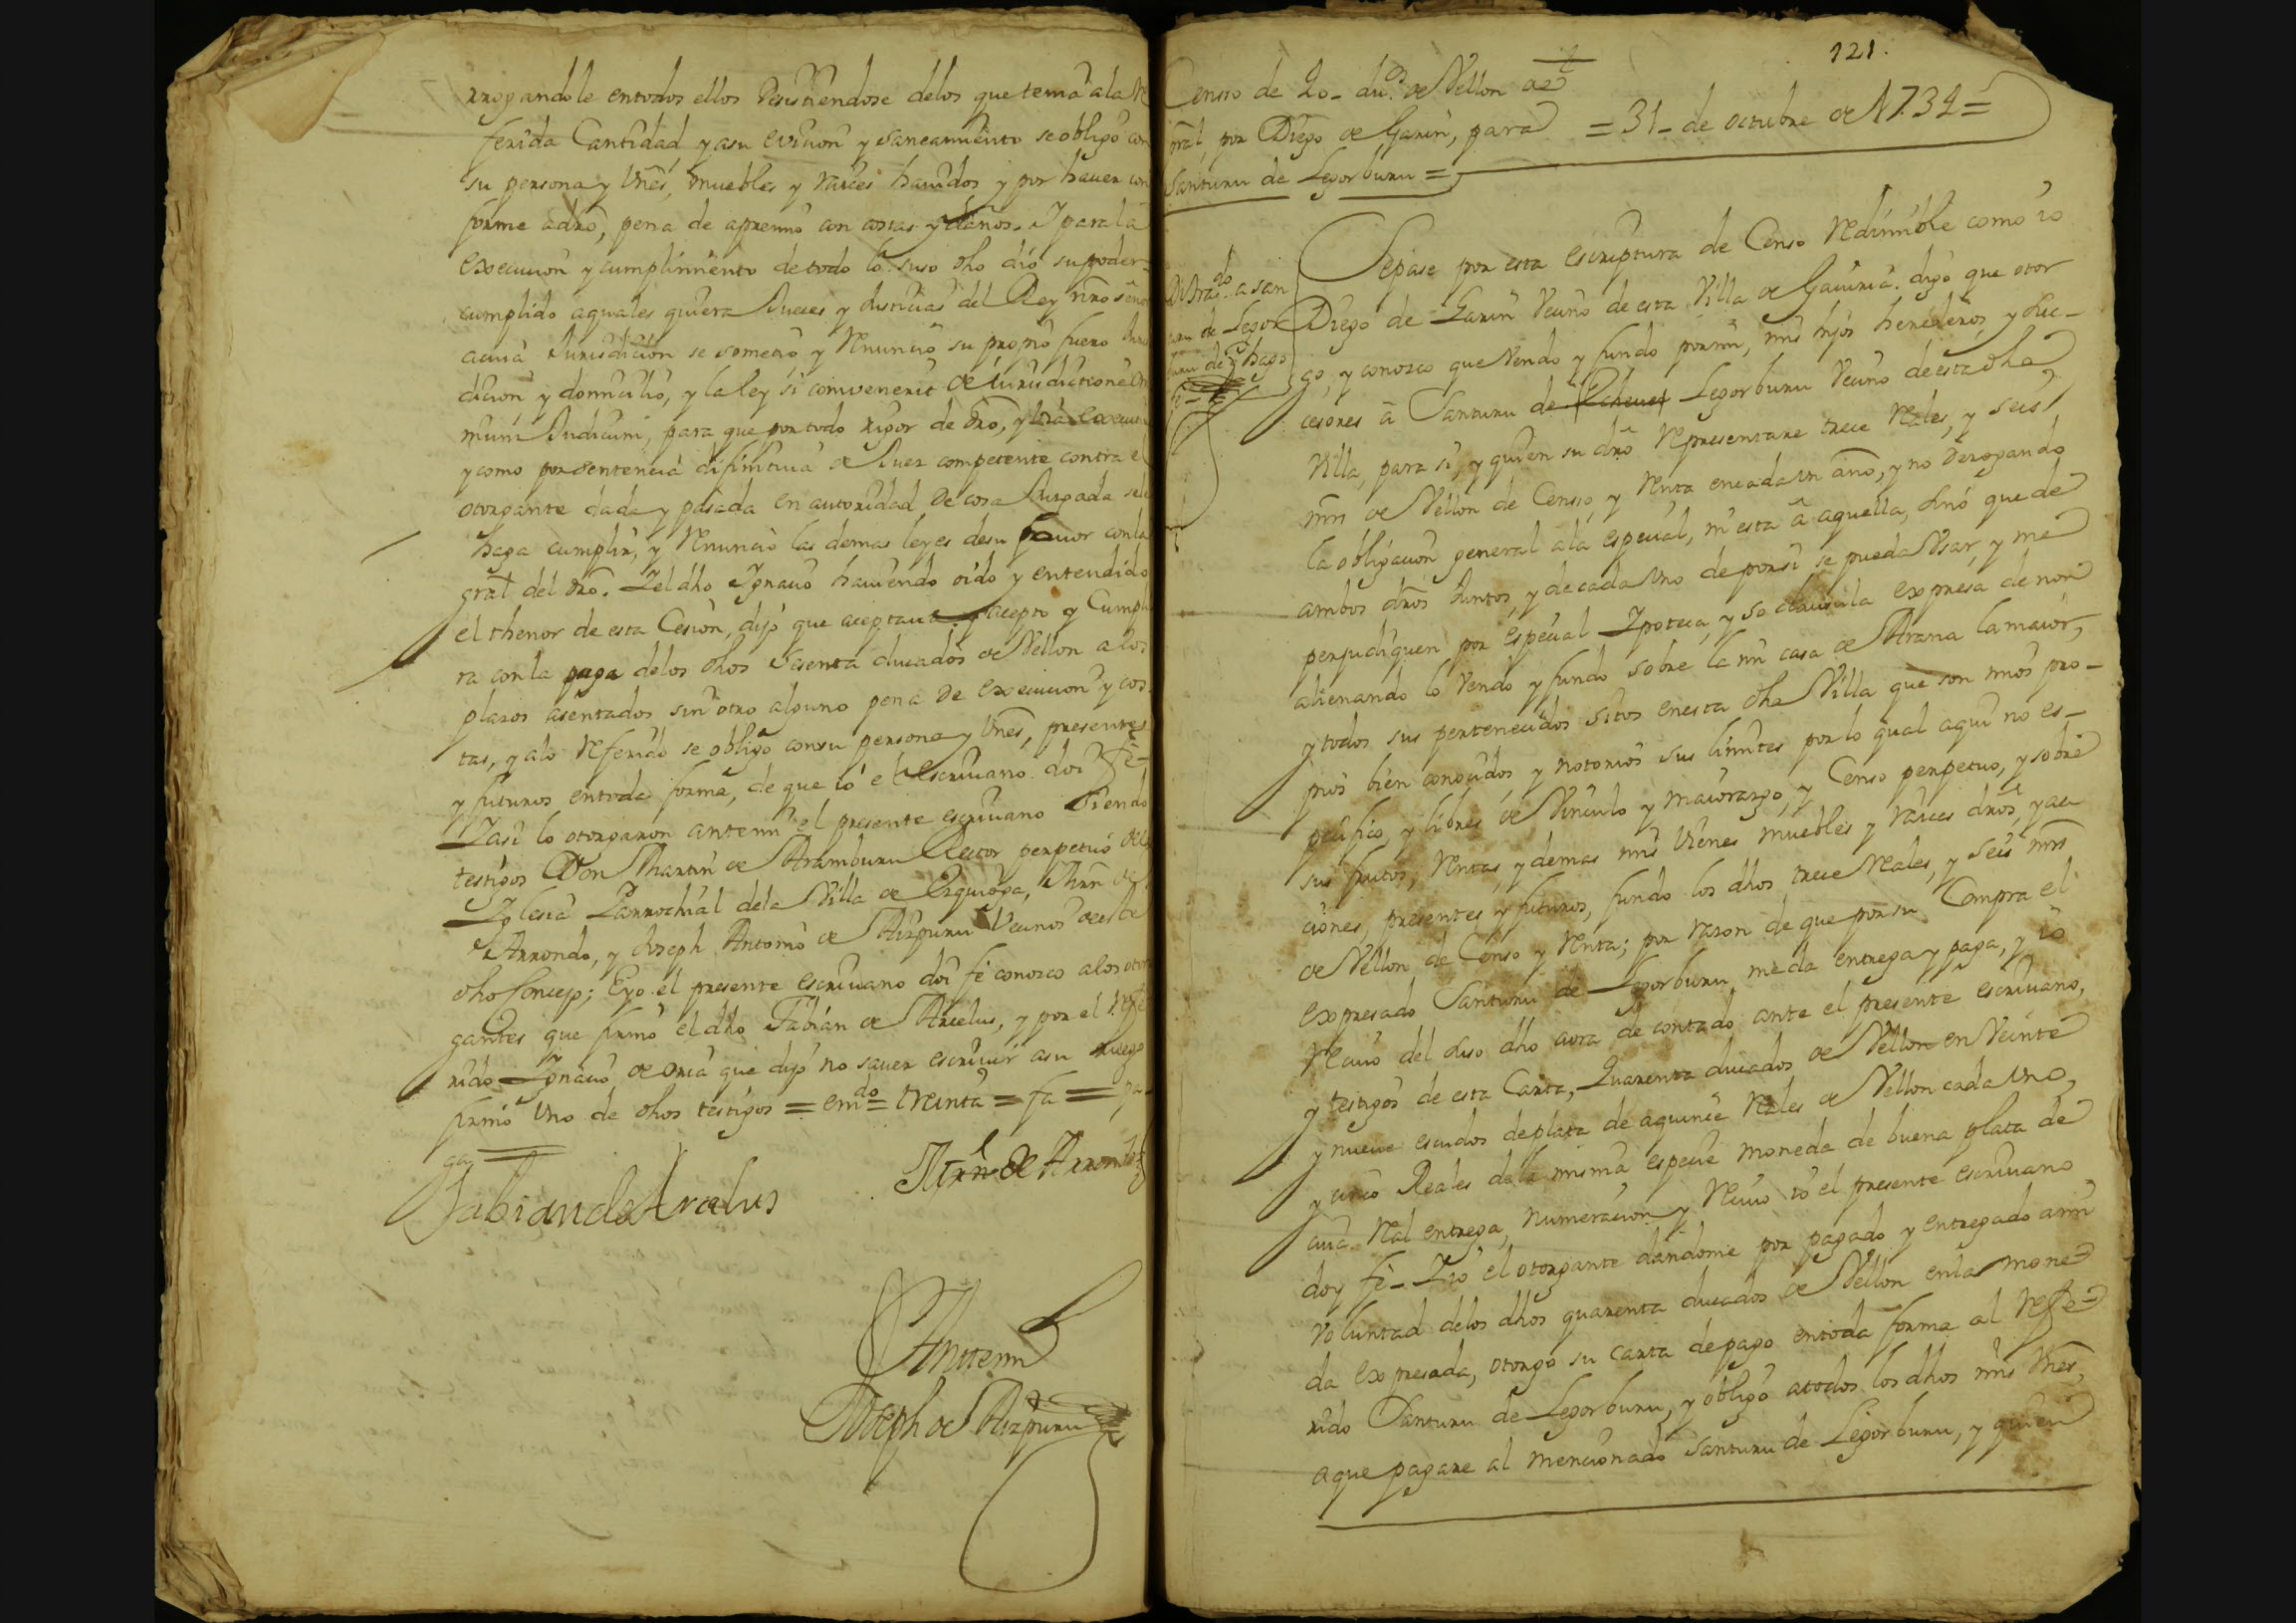 rrogandole entodos ellos desistiendose delos que tenia ala Re
ferida Cantidad y asu eviccion y saneamiento se obligò con
su persona y vnes, muebles y raices havidos y por haver con
forme adro, pena de apremio con costas y daños. I para la
execucion y cumplimiento detodo lo suso dho dio su poder
cumplido aquales quiera Jueces y Justicias del Rey nro señor
acuia Jurisdicion se sometio, y Renuncio su propio fuero Juris
dicion y domicilio, y la ley si convenerit de iurisdictione om
nium Judicum, para que por todo rigor de dro, y via executi
y como por sentencia difinitiua de Juez competente contra el
otorgante dada y pasada en autoridad de cosa Juzgada sele
haga cumplir, y Renuncio las demas leyes desu favor con la
gral del dro. Y el dho Ignacio haviendo oido y entendido
el thenor de esta Cesion, dijo que aceptaua y acepto y Cumpli
ra con la paga delos dhos sesenta ducados de Vellon a los
plazos asentados sin otro alguno pena de execucion y cos
tas, y alo Referido se obligò con su persona y vnes, presentes
y futuros entoda forma, de que io el escriuano doi fè
Y asi lo otorgaron antemi el presente escriuano siendo
testigos Don Martin de Aramburu Rector perpetuo dela
Iglesia Parrochial dela Villa de Ezquioga, Mrn de
Arrondo, y Joseph Antonio de Aizpuru Vecinos deeste
dho Concejo; E yo el presente escriuano doi fè conozco a los otor
gantes que firmò el dho Fabian de Arcelus, y por el Refe
rido Ignacio de Oria que dijo no saver escriuir asu ruego
firmò vno de dhos testigos = emdo = treinta = fa = pa
ga =
Fabian de Arcelus
Mrn de Arrondo
Antemi
Joseph de Aizpuru
121.
Censso de 40 - dus de Vellon de
pral, por Diego de Garin, para
Santuru de Legorburu =
= 31 - de octubre de 1734 =
Sepase por esta escriptura de Censo Redimible como io
Diego de Garin Vecino de esta Villa de Gaviria. digo que otor
go, y conozco que Vendo y fundo por mi, mis hijos herederos, y suc-
cesores â Santuru de Legorburu Vecino de esta dha
Villa, para si, y quien su dro Representare trece Reales, y seis
mrs de Vellon de Censso, y Renta encada un año, y no derogando
la obligacion general ala especial, ni esta â aquella, sinò que de
ambos dros Juntos, y de cada vno de por si se pueda Vsar, y me
perjudiquen por especial Ipoteca, y so clausula expresa de non
alienando lo Vendo y fundo sobre la mi casa de Arana la maior,
y todos sus pertenecidos sitos en esta dha Villa que son mios pro-
pios bien conocidos, y notorios sus limites por lo qual aqui no es-
pecifico, y libres de Vinculo y maiorazgo, y Censo perpetuo, y sobre
sus frutos, Rentas, y demas mis vienes muebles y raices dros, y ac
ciones, presentes y futuros, fundo los dhos trece Reales, y seis mrs
de Vellon de Censo y Renta; por razon de que por su Compra el
expresado Santuru de Legorburu me da entrega y paga, y io
Recivo del suso dho aora de contado ante el presente escriuano,
y testigos de esta Carta, Quarenta ducados de Vellon en Veinte
y nueve escudos de plata de aquince Reales de Vellon cada vno,
y cinco Reales dela misma especie moneda de buena plata de
cuia Real entrega, numeracion y Recivo io el presente escriuano
doy fè - Y io el otorgante dandome por pagado y entregado ami
voluntad delos dhos quarenta ducados de Vellon en la mone
da expresada, otorgo su carta de pago entoda forma al Refe-
rido Santuru de Legorburu, y obligo atodos los dhos mis vnes,
aque pagare al mencionado Santuru de Legorburu, y quien